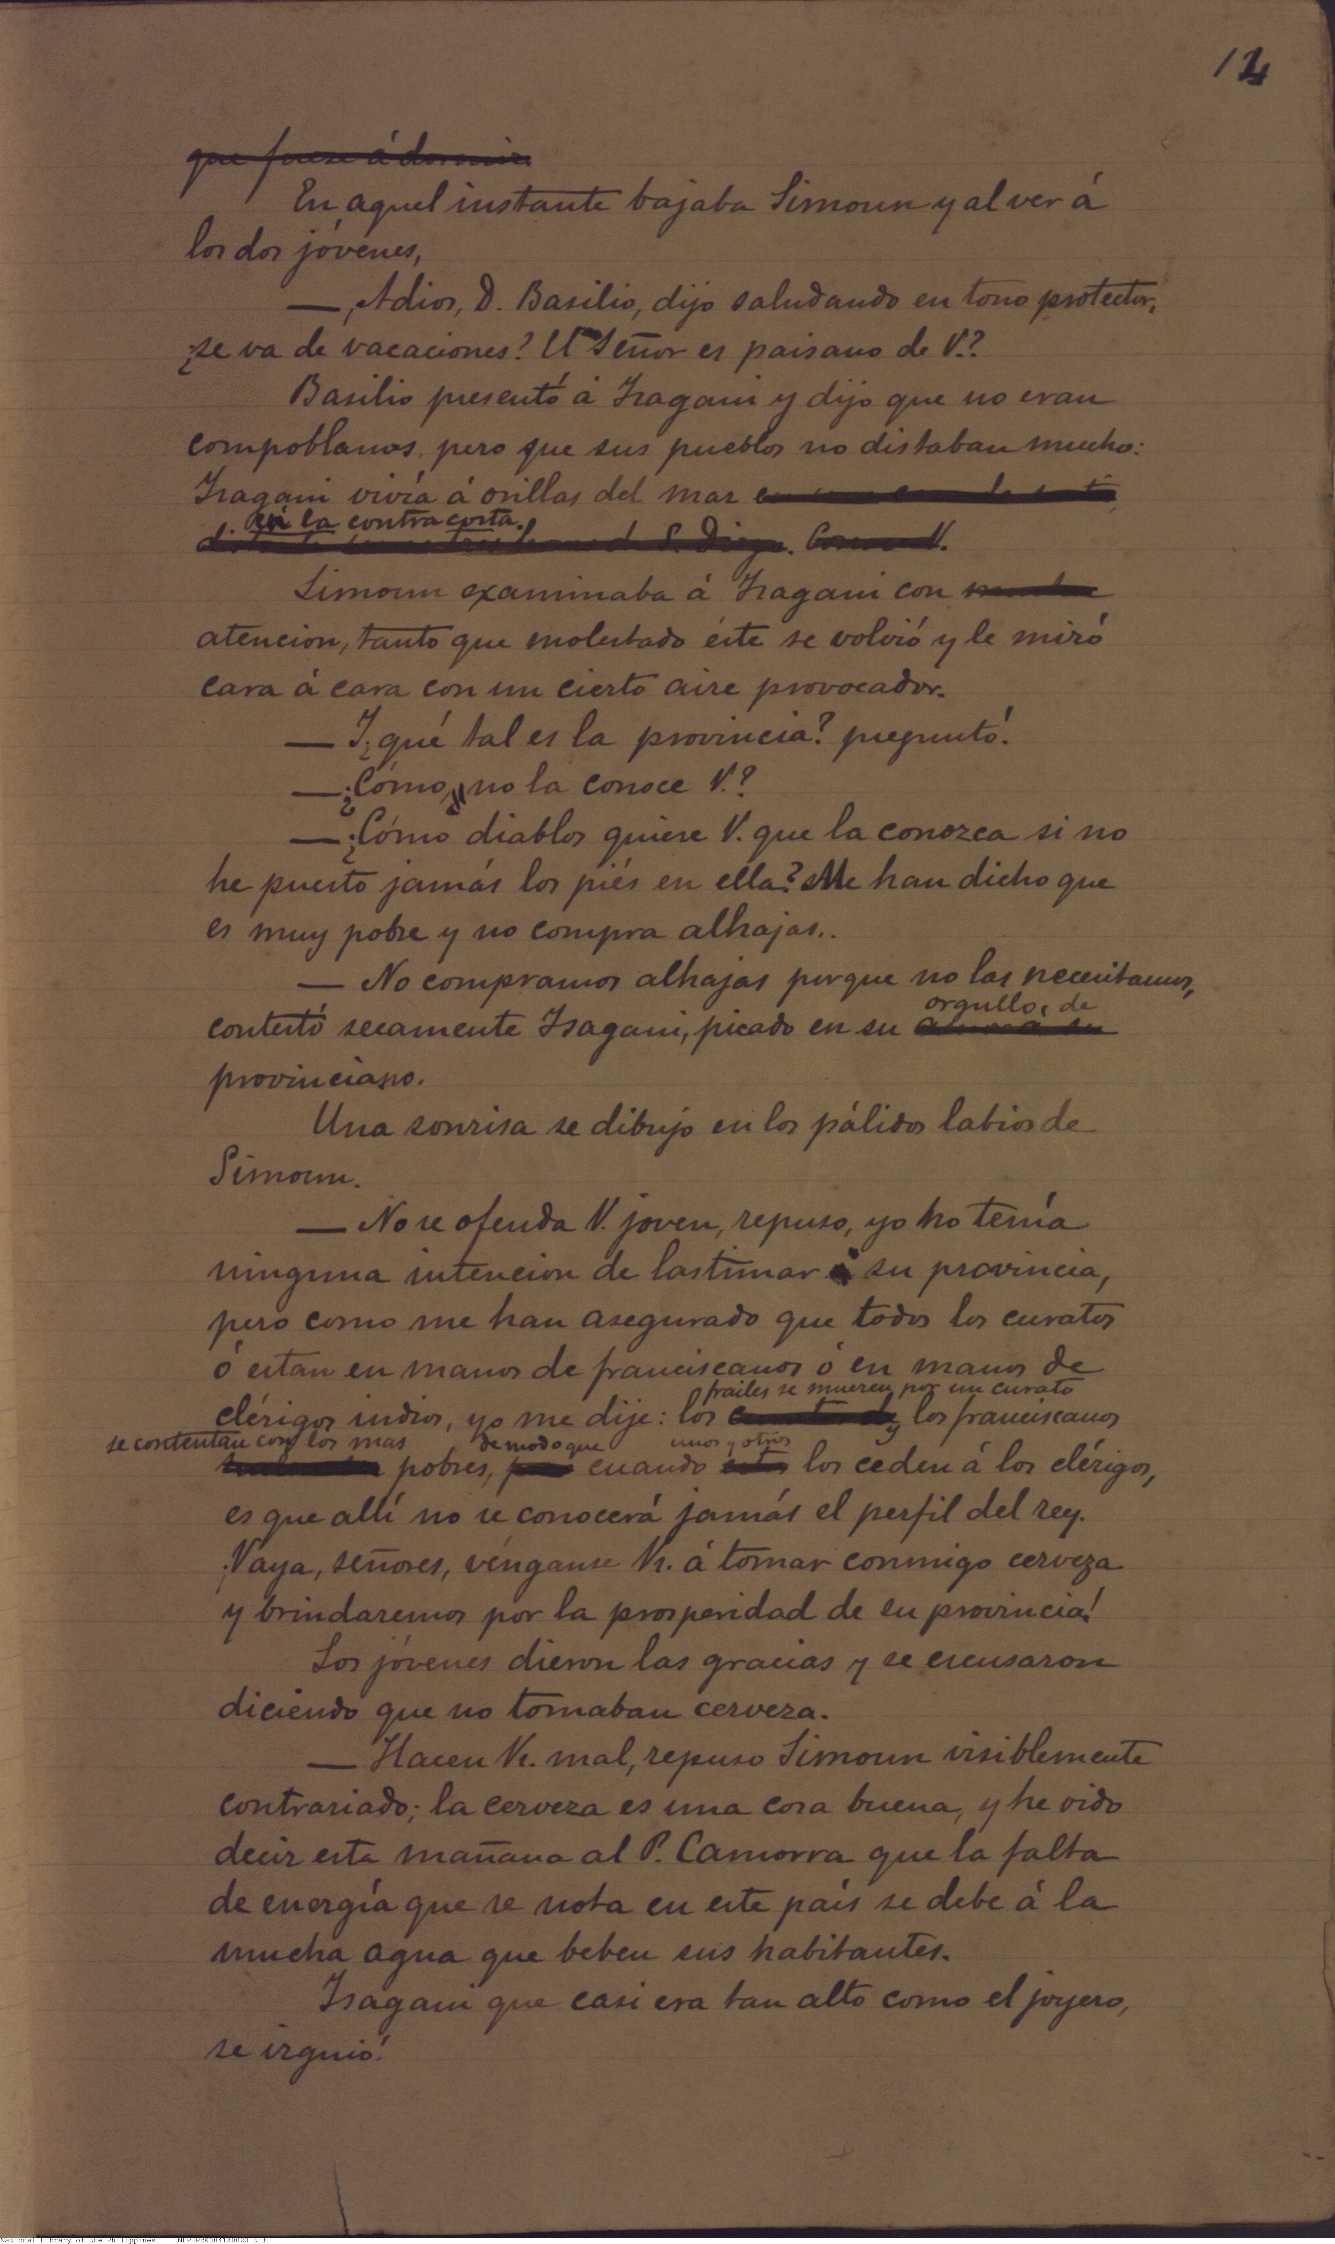 14
que fuese á dormir.
En aquel instante bajaba Simoun y al ver á
los dos jóvenes,
— ¡Adios, D. Basilio, dijo saludando en tono protector,
¿se va de vacaciones? El Señor es paisano de V.?
Basilio presentó á Isagani y dijo que no eran
compoblanos, pero que sus pueblos no distaban mucho:
Isagani vivía á orillas del mar
en la contracosta.
S. Diego. V.
Simoun examinaba á Isagani con
atencion, tanto que molestado éste se volvió y le miró
cara á cara con un cierto aire provocador.
— Y ¿qué tal es la provincia? preguntó.
— ¿Cómo, no la conoce V.?
— ¿Cómo diablos quiere V. que la conozca si no
he puesto jamás los piés en ella? Me han dicho que
es muy pobre y no compra alhajas..
— No compramos alhajas porque no las necesitamos,
orgullo, de
contestó secamente Isagani, picado en su
provinciano.
Una sonrisa se dibujo en los pálidos labios de
Simoun.
— No se ofenda V. joven, repuso, yo no tenía
ninguna intencion de lastimar á su provincia,
pero como me han asegurado que todos los curatos
ó estan en manos de franciscanos ó en manos de
frailes se mueren por un curato
clérigos indios, yo me dije: los y los franciscanos
se contentan con los mas de modo que unos y otros
pobres, cuando los ceden á los clérigos,
es que allí no se conocerá jamás el perfil del rey.
¡Vaya, señores, vénganse Vs. á tomar conmigo cerveza
y brindaremos por la prosperidad de su provincia!
Los jóvenes dieron las gracias y se escusaron
diciendo que no tomaban cerveza.
— Hacen Vs. mal, repuso Simoun visiblemente
contrariado; la cerveza es una cosa buena, y he oido
decir esta mañana al P. Camorra que la falta
de energía que se nota en este país se debe á la
mucha agua que beben sus habitantes.
Isagani que casi era tan alto como el joyero,
se irguió.